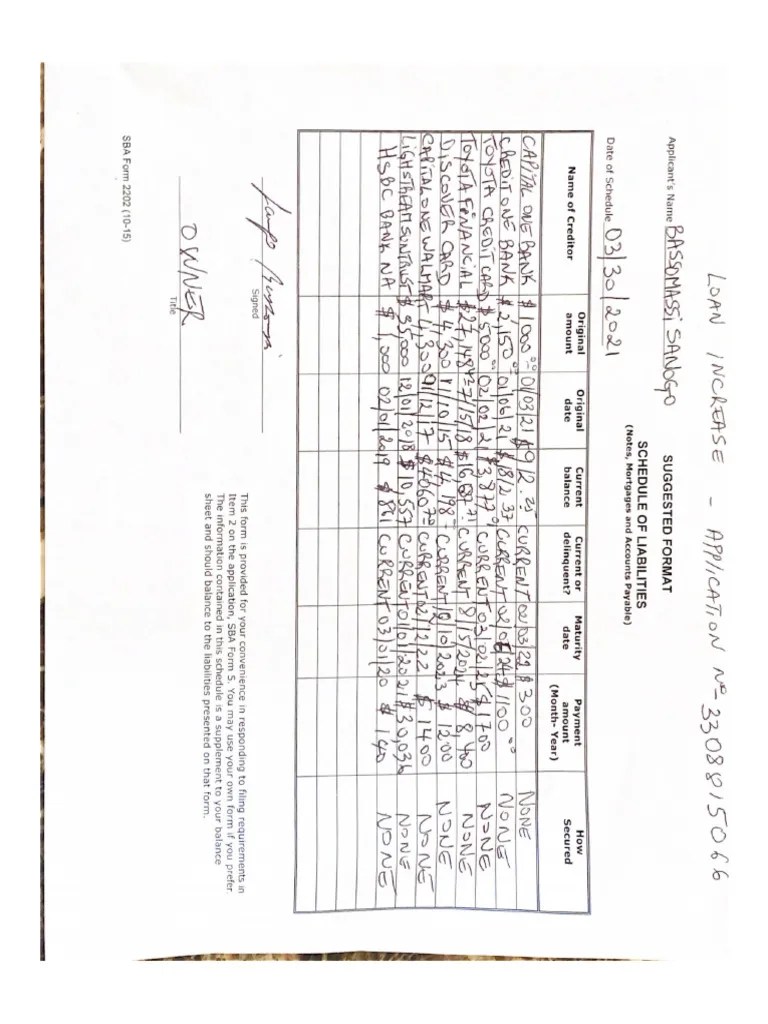 LOAN INCREASE - APPLICATION No 3308815066
SUGGESTED FORMAT
SCHEDULE OF LIABILITIES
(Notes, Mortgages and Accounts Payable)
Applicant's Name BASSOMASSI SANOGO
Date of Schedule 03/30/2021
Name of Creditor Original amount Original date Current balance Current or delinquent? Maturity date Payment amount (Month- Year) How Secured
CAPITAL ONE BANK $1000.00 01/03/21 CURRENT $300 NONE
CREDIT ONE BANK $2,150.00 01/06/21 CURRENT $1100.00 NONE
TOYOTA CREDIT CARD $5000 02/02/21 CURRENT 03/02/25 $1700 NONE
TOYOTA FINANCIAL 7/15/18 CURRENT 8/15/2024 $8,400 NONE
DISCOVER CARD $4,300 11/10/15 $4,198 CURRENT 10/10/2023 $1200 NONE
CAPITAL ONE WALMART 4,300 $4060.70 CURRENT 02/12/22 $1400 NONE
LIGHSTREAM SUNTRUST $35,000 12/01/2018 $10,557 CURRENT 01/01/2021 $30,036 NONE
HSBC BANK NA $1,000 02/01/2019 $881 CURRENT 03/01/20 $140 NONE
Signed
OWNER
Title
This form is provided for your convenience in responding to filing requirements in
Item 2 on the application, SBA Form 5. You may use your own form if you prefer
The information contained in this schedule is a supplement to your balance
sheet and should balance to the liabilities presented on that form.
SBA Form 2202 (10-15)